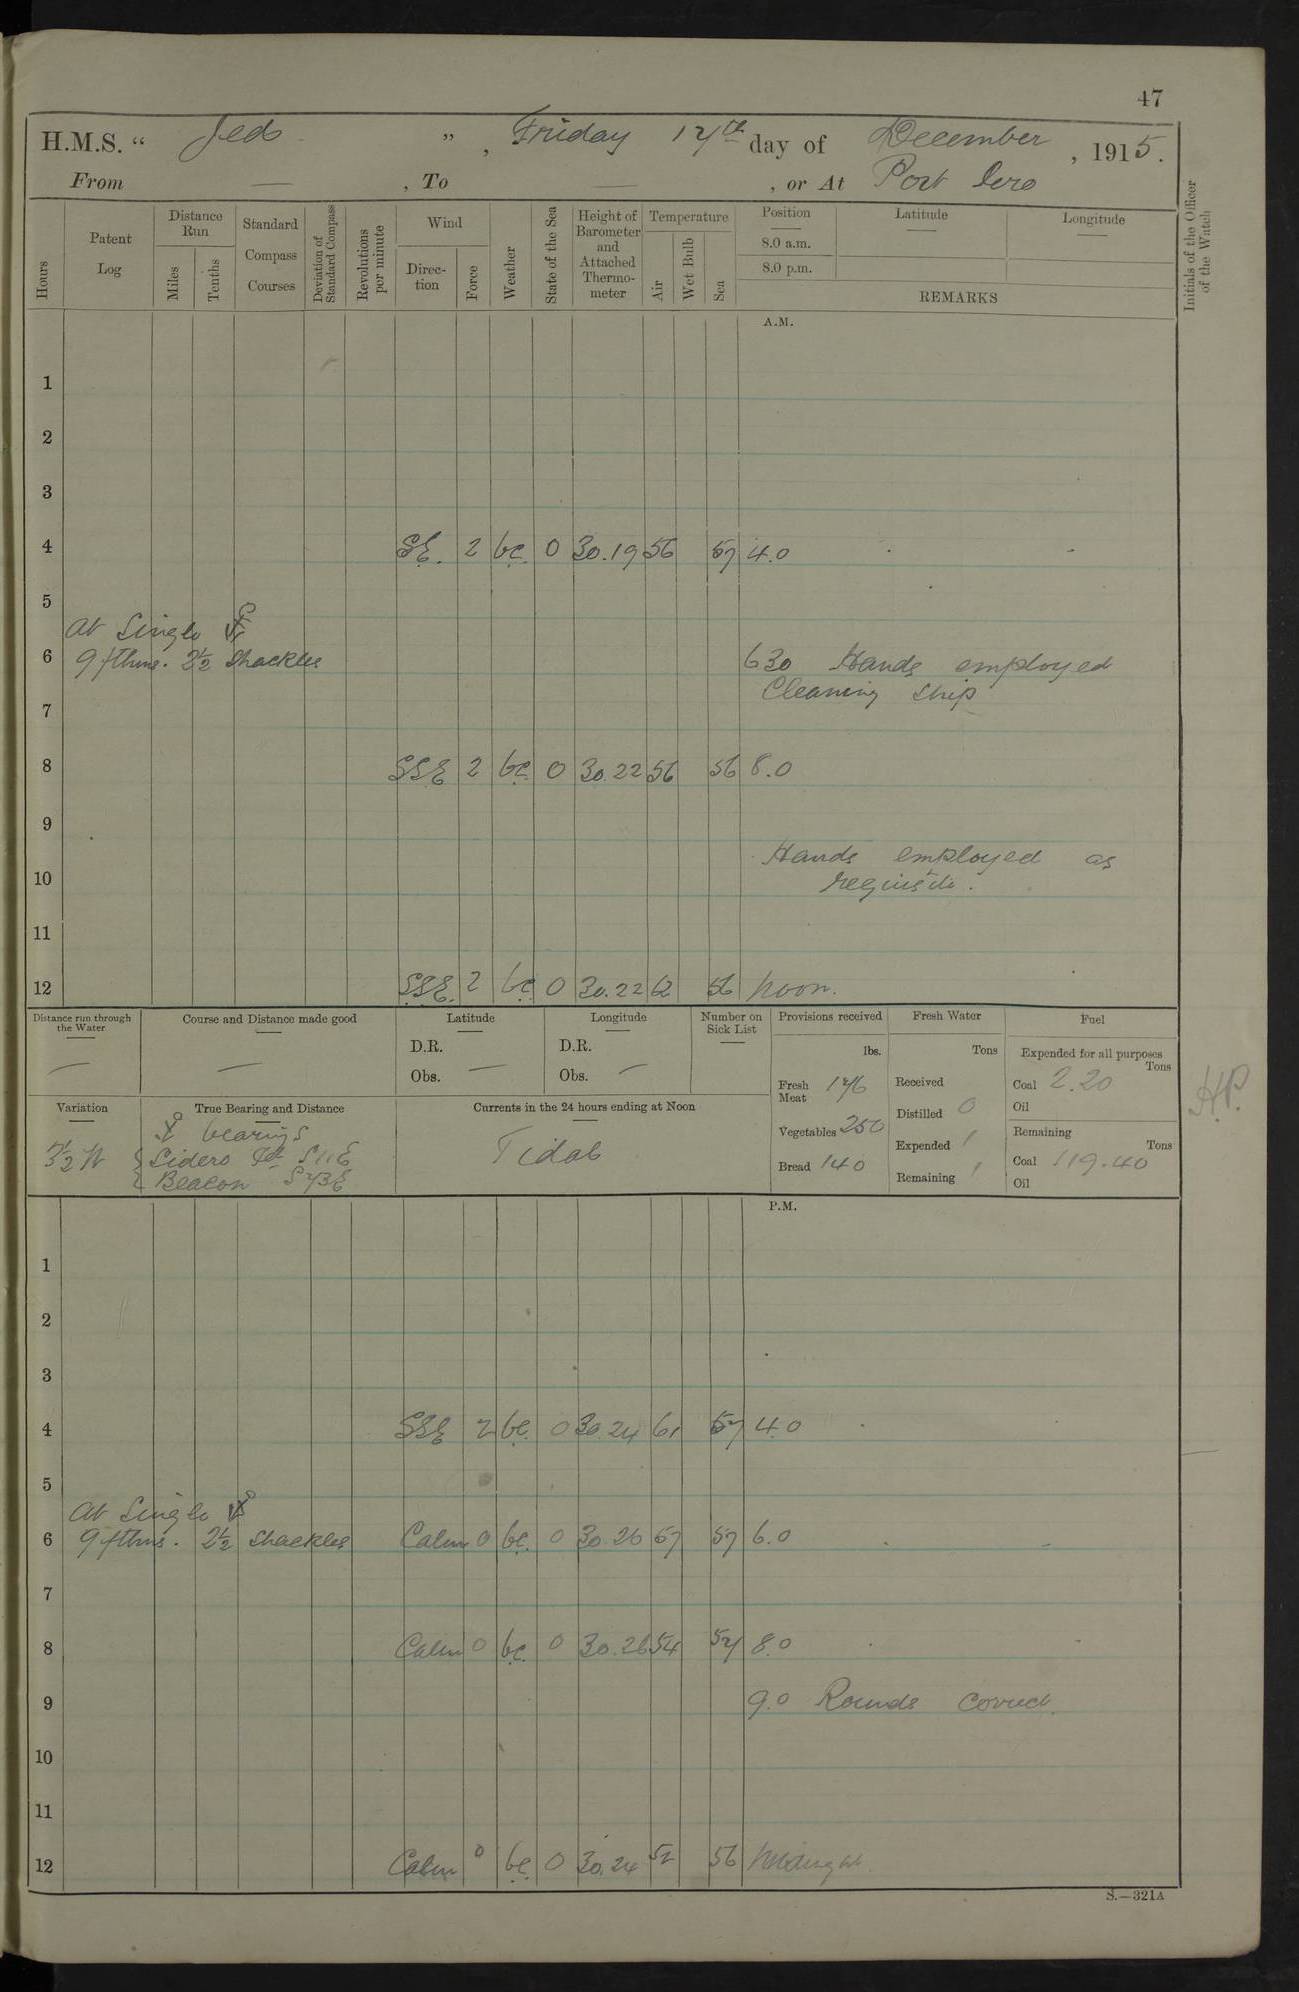 47
H.M.S. “ Jed ”, Friday 17th day of December, 1915.
From — , To — , or At Port Iero
Hours
Patent Log
Distance Run
Miles
Tenths
Standard Compass Courses
Deviation of Standard Compass
Revolutions per minute
Wind
Direction
Force
Weather
State of the Sea
Height of Barometer and Attached Thermometer
Temperature
Air
Wet Bulb
Sea
Position
8.0 a.m.
8.0 p.m.
Latitude
Longitude
REMARKS
Initials of the Officer of the Watch
A.M.
1
2
3
4 SE. 2 bc. 0 30.19 56 57 4.0
5
At Single
6 9 fthms. 2½ Shackles 630 Hands employed
Cleaning Ship
7
8 SSE 2 bc 0 30.22 56 56 8.0
9
Hands employed as
10 requisite.
11
12 SSE. 2 bc 0 30.22 62 56 Noon.
Distance run through the Water —
Course and Distance made good —
Latitude
D.R.
Obs. —
Longitude
D.R.
Obs. —
Number on Sick List —
Provisions received
lbs.
Fresh Meat 176
Vegetables 250
Bread 140
Fresh Water
Tons
Received
Distilled 0
Expended
Remaining
Fuel
Expended for all purposes
Tons
Coal 2.20
Oil
Remaining
Tons
Coal 119.40
Oil
H.P.
Variation
3½ W
True Bearing and Distance
bearings
Sidero S11E
Beacon S73E
Currents in the 24 hours ending at Noon
Tidal
P.M.
1
2
3
4 SSE 2 bc. 0 30.24 61 57 4.0
5
At Single
6 9 fthms. 2½ Shackles Calm 0 bc. 0 30.26 57 57 6.0
7
8 Calm 0 bc. 0 30.26 54 57 8.0
9 9.0 Rounds Correct.
10
11
12 Calm 0 bc. 0 30.24 52 56 Midnight.
S.—321A